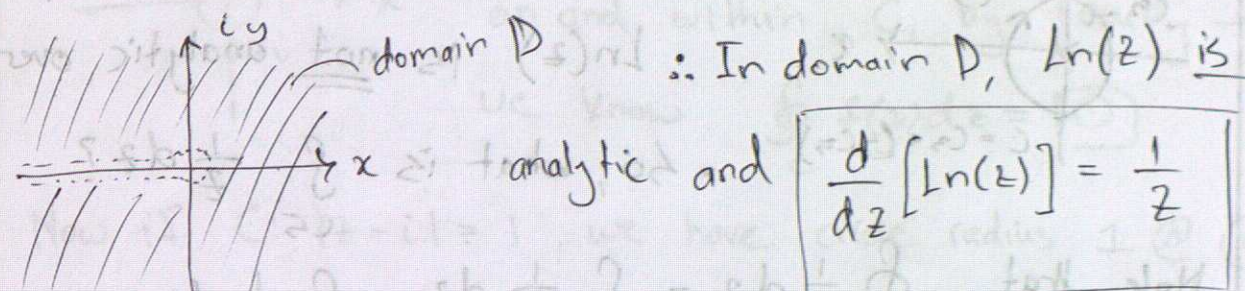 iy
domain D
x
∴ In domain D, Ln(z) is
analytic and d/dz [Ln(z)] = 1/z